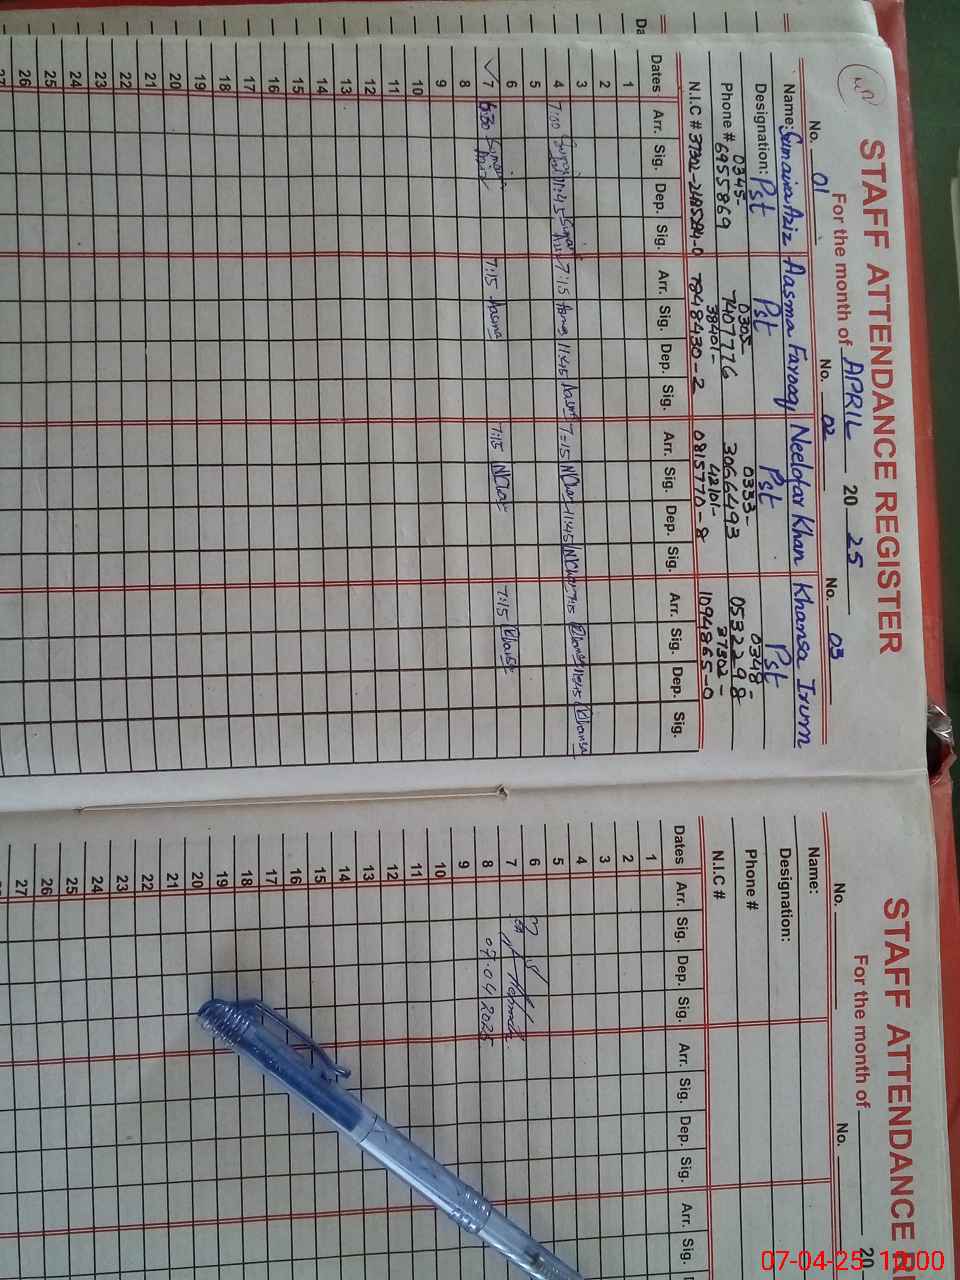 STAFF ATTENDANCE REGISTER
For the month of APRIL 20 25
No. 01 No. 02 No. 03
Name: Sumaira Aziz Aasma Farooq Neelofar Khan Khansa Irum
Designation: Pst Pst Pst Pst
Phone # 0345- 6955869 0305- 7407776 0333- 3066493 0348- 0532298
N.I.C # 38401- 42101- 37302-
7848430-2 0815770-8 1094865-0
Dates Arr. Sig. Dep. Sig. Arr. Sig. Dep. Sig. Arr. Sig. Dep. Sig. Arr. Sig. Dep. Sig.
1
2
3
4 7:00 11:45 7:15 11:45 Aasma 7:15 11:45 7:15 11:45 Khansa
5
6
7 6:30 7:15 Aasma 7:15 7:15 Khansa
8
9
10
11
12
13
14
15
16
17
18
19
20
21
22
23
24
25
26
27
STAFF ATTENDANCE R
For the month of 20
No. No.
Name:
Designation:
Phone #
N.I.C #
Dates Arr. Sig. Dep. Sig. Arr. Sig. Dep. Sig. Arr. Sig.
1
2
3
4
5
6
7
8 07.04.2025
9
10
11
12
13
14
15
16
17
18
19
20
21
22
23
24
25
26
27
07-04-25 11:00